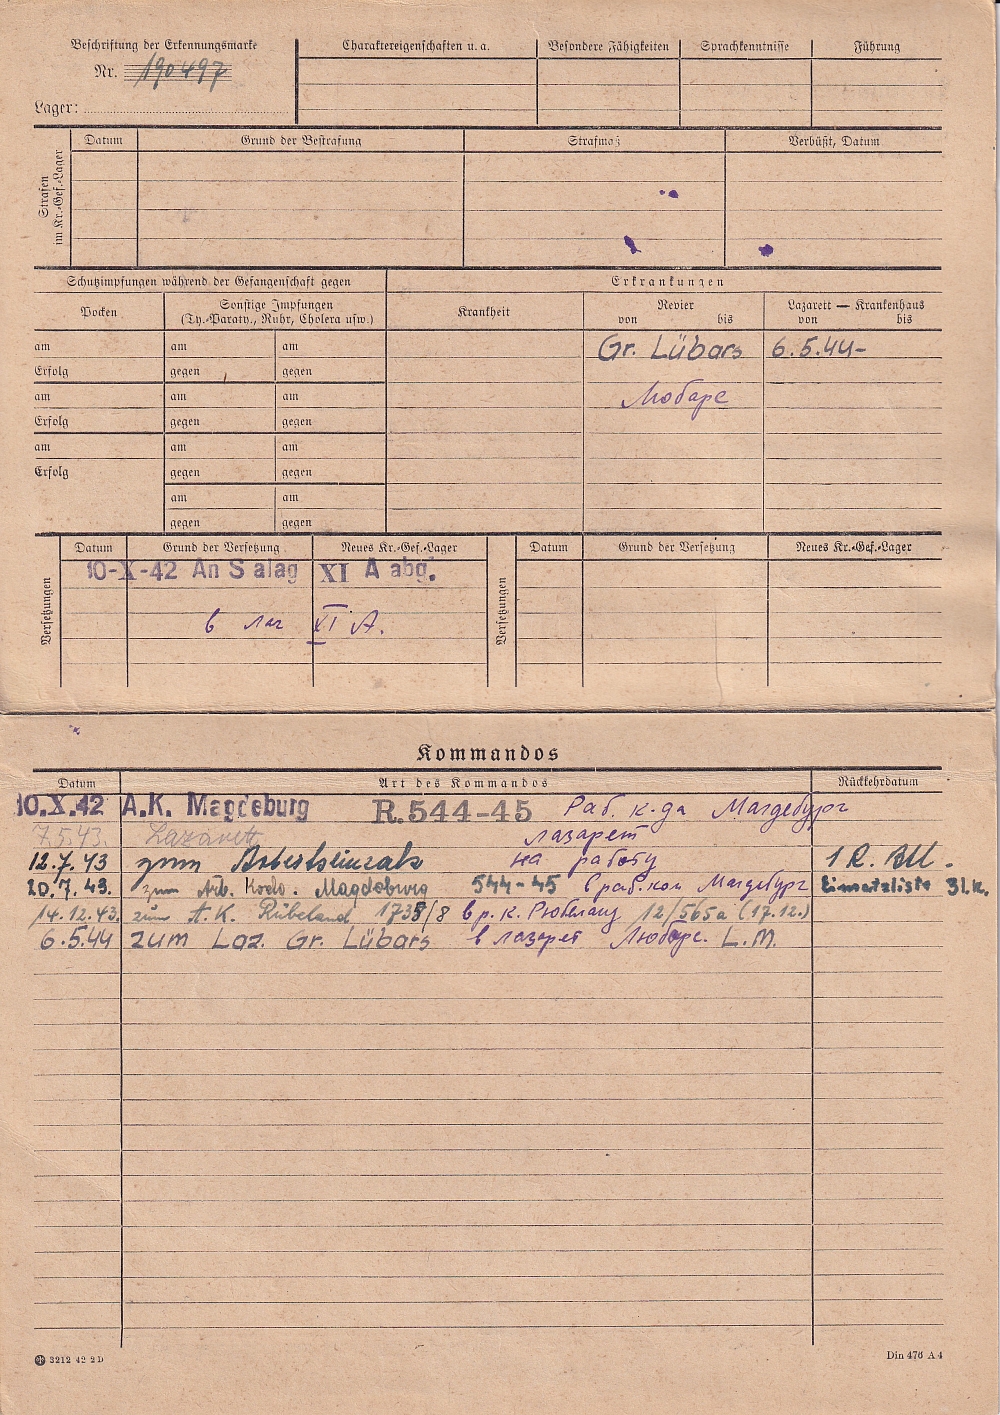 Beschriftung der Erkennungsmarke
Nr. 190497
Lager:
Charaktereigenschaften u. a.
Besondere Fähigkeiten
Sprachkenntnisse
Führung
Strafen
im Kr.-Gef.-Lager
Datum
Grund der Bestrafung
Strafmaß
Verbüßt, Datum
Schutzimpfungen während der Gefangenschaft gegen
Erkrankungen
Pocken
Sonstige Impfungen
(Ty.-Paraty., Ruhr, Cholera usw.)
Krankheit
Revier
von bis
Lazarett — Krankenhaus
von bis
am am am
Gr. Lübars 6.5.44-
Erfolg gegen gegen
am am am
Любарс
Erfolg gegen gegen
am am am
Erfolg gegen gegen
am am
gegen gegen
Versetzungen
Datum Grund der Versetzung Neues Kr.-Gef.-Lager
10-X-42 An Stalag XI A abg.
в лаг XI A.
Versetzungen
Datum Grund der Versetzung Neues Kr.-Gef.-Lager
Kommandos
Datum Art des Kommandos Rückkehrdatum
10.X.42 A.K. Magdeburg R.544-45 Раб. к-да Магдебург
7.5.43. Lazarett лазарет
12.7.43 zum Arbeitseinsatz на работу
20.7.43. zum Arb. Kodo. Magdeburg 544-45 в раб.ком Магдебург Einsatzliste
14.12.43. zum A.K. Rübeland 1738/8 в р.к. Рюбеланд 12/565a (17.12.)
6.5.44 zum Laz. Gr. Lübars в лазарет Любарс. L.M.
3212 42 2 D
Din 476 A 4